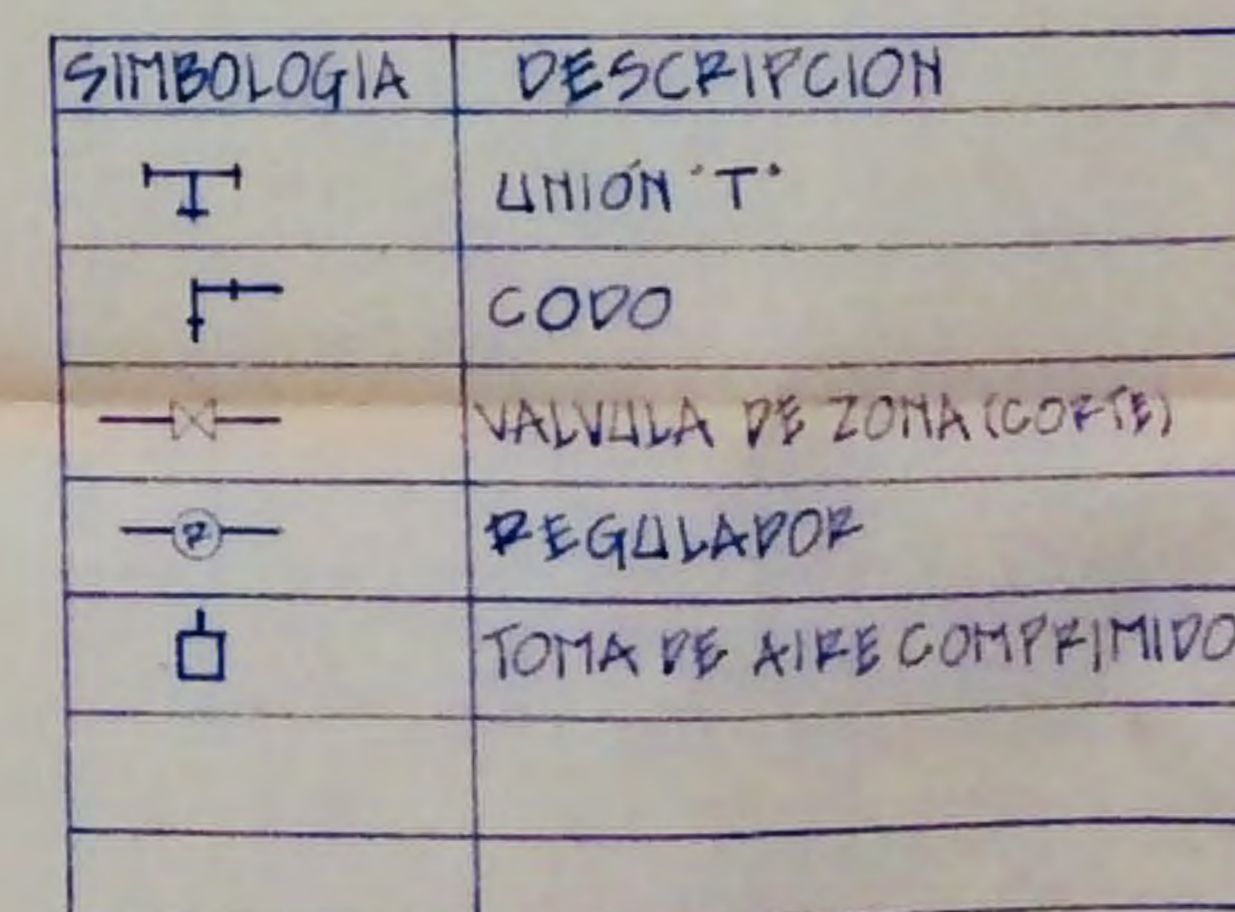 SIMBOLOGIA DESCRIPCION
UNIÓN "T"
CODO
VALVULA DE ZONA (CORTE)
R REGULADOR
TOMA DE AIRE COMPRIMIDO